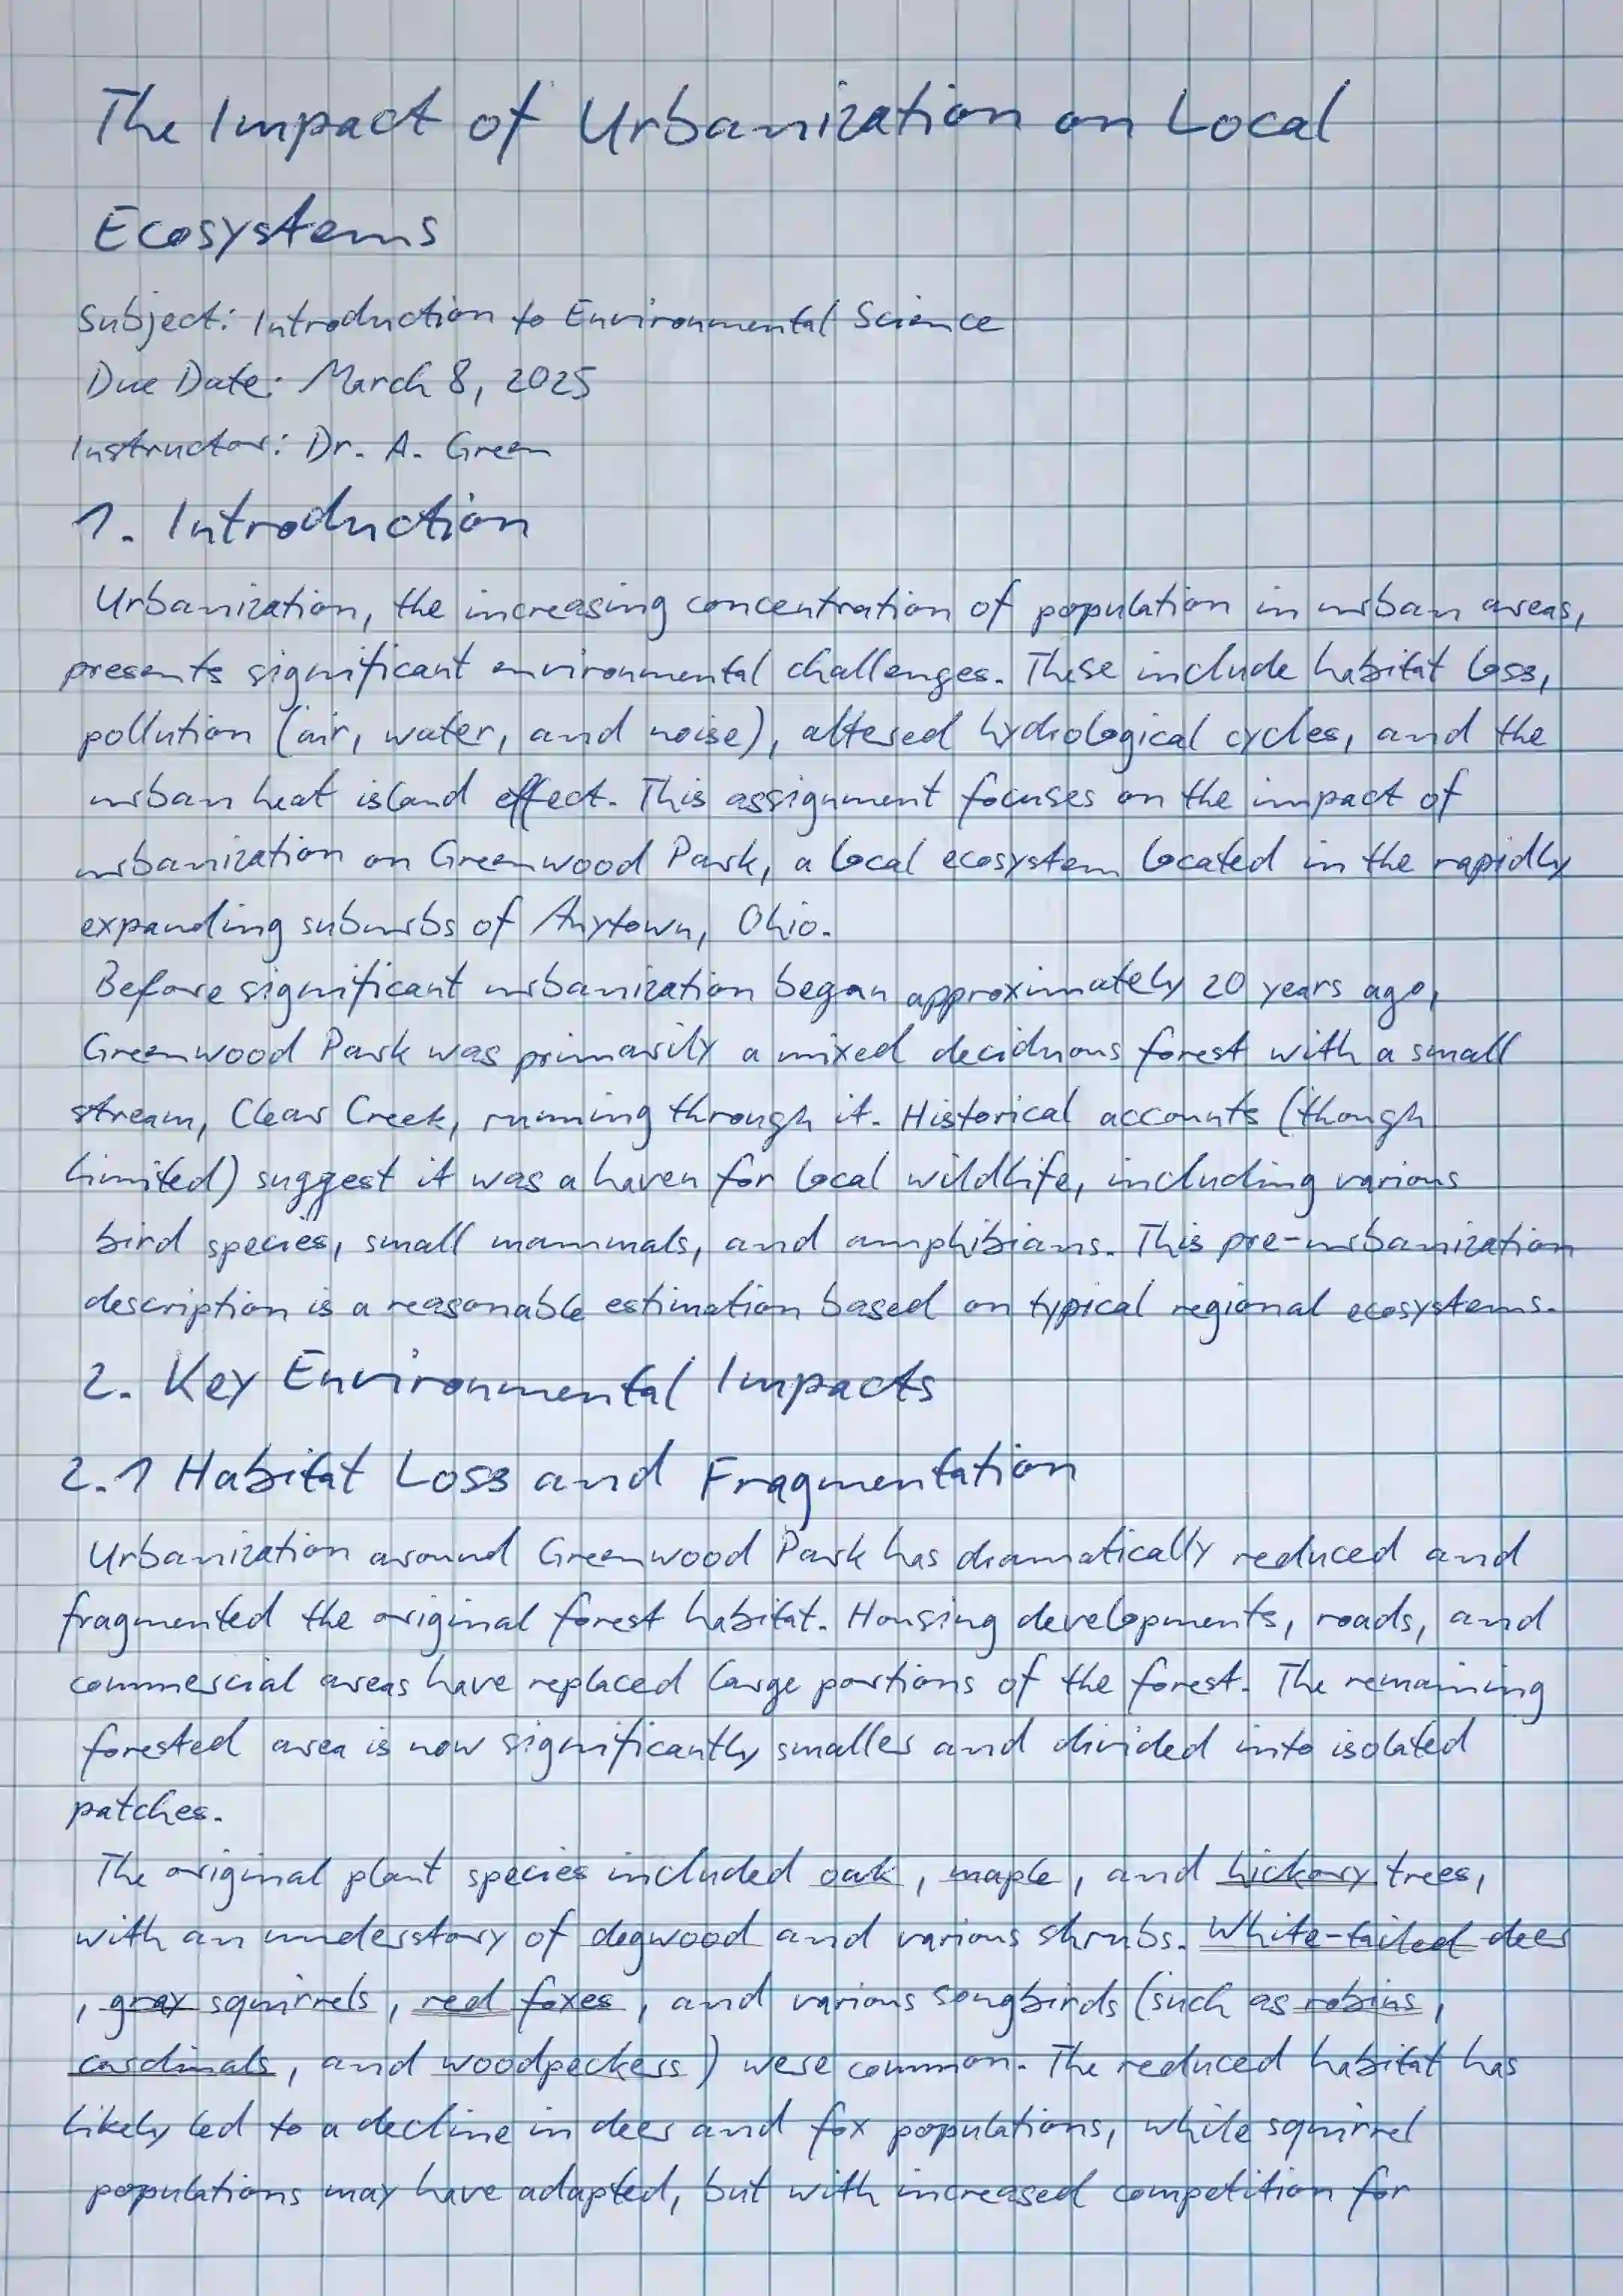 The Impact of Urbanization on Local
Ecosystems
Subject: Introduction to Environmental Science
Due Date: March 8, 2025
Instructor: Dr. A. Green
1. Introduction
Urbanization, the increasing concentration of population in urban areas,
presents significant environmental challenges. These include habitat loss,
pollution (air, water, and noise), altered hydrological cycles, and the
urban heat island effect. This assignment focuses on the impact of
urbanization on Greenwood Park, a local ecosystem located in the rapidly
expanding suburbs of Anytown, Ohio.
Before significant urbanization began approximately 20 years ago,
Greenwood Park was primarily a mixed deciduous forest with a small
stream, Clear Creek, running through it. Historical accounts (though
limited) suggest it was a haven for local wildlife, including various
bird species, small mammals, and amphibians. This pre-urbanization
description is a reasonable estimation based on typical regional ecosystems.
2. Key Environmental Impacts
2.1 Habitat Loss and Fragmentation
Urbanization around Greenwood Park has dramatically reduced and
fragmented the original forest habitat. Housing developments, roads, and
commercial areas have replaced large portions of the forest. The remaining
forested area is now significantly smaller and divided into isolated
patches.
The original plant species included oak, maple, and hickory trees,
with an understory of dogwood and various shrubs. White-tailed deer
, gray squirrels, red foxes, and various songbirds (such as robins,
cardinals, and woodpeckers) were common. The reduced habitat has
likely led to a decline in deer and fox populations, while squirrel
populations may have adapted, but with increased competition for